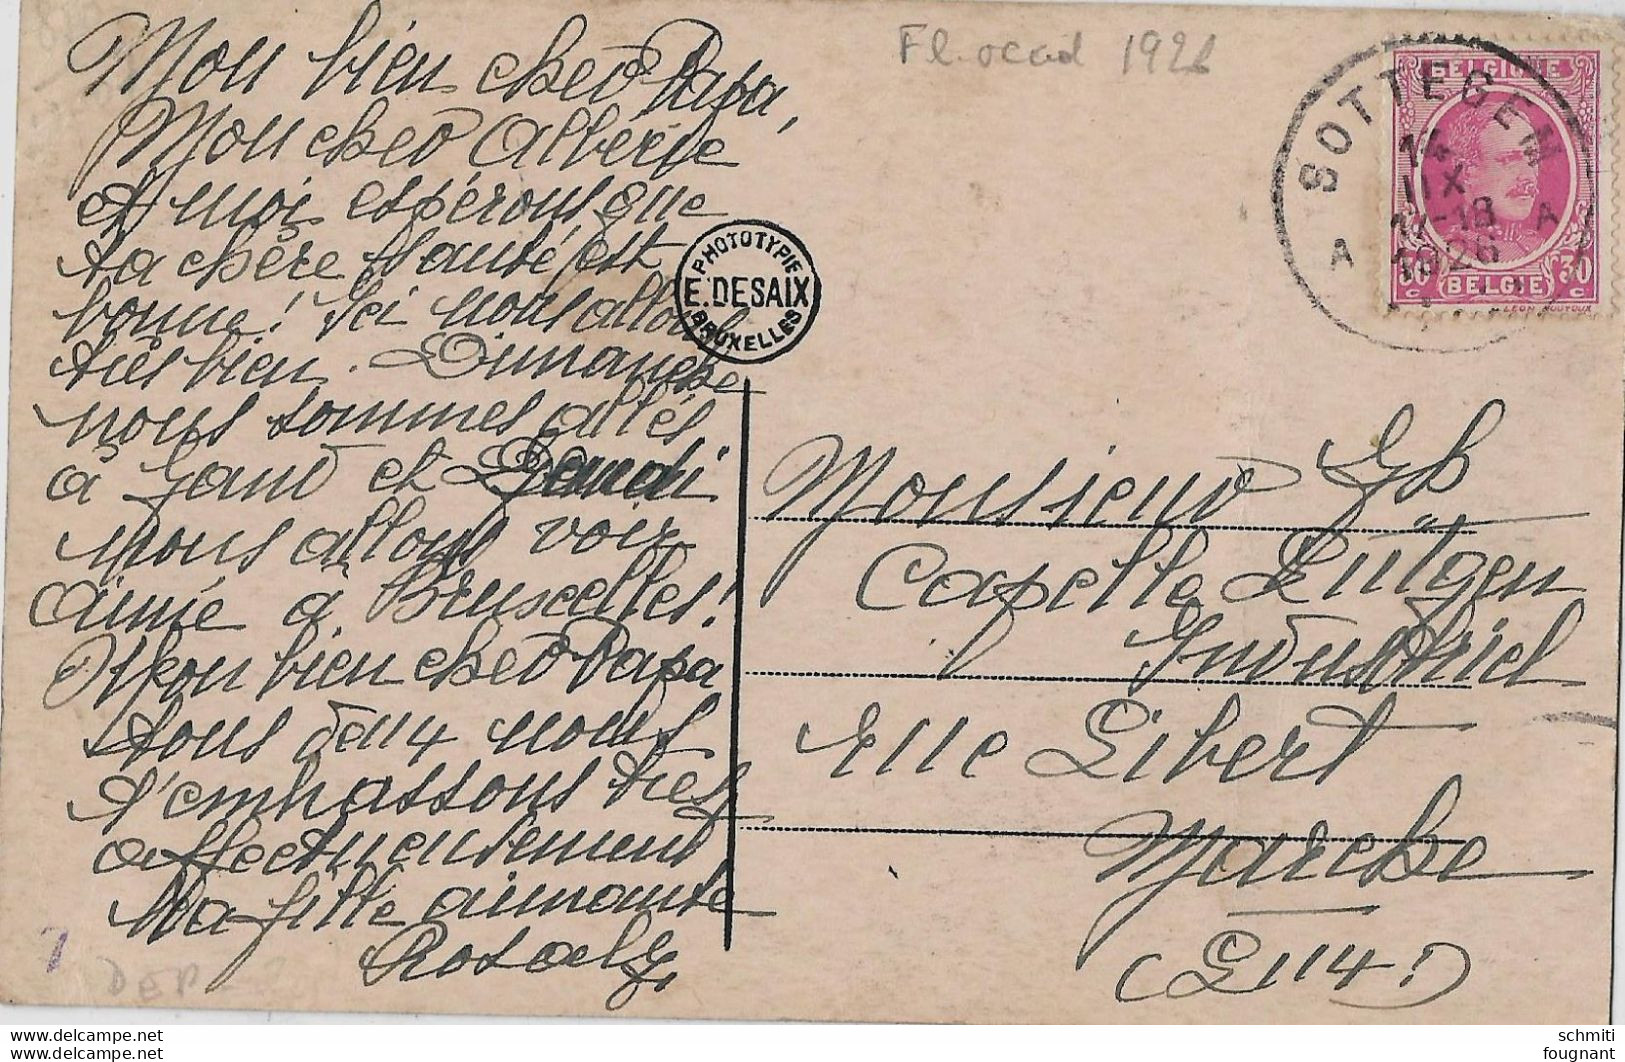 Mon bien cher Papa,
Mon cher Albéric
et moi espérons que
ta chère santé est
bonne! Ici nous allons
très bien. Dimanche
nous sommes allés
à Gand et
nous allons voir
Aimée à Bruxelles!
Mon bien cher Papa
tous deux nous
t'embrassons très
affectueusement
Ta fille aimante
Fl. occid 1926
PHOTOTYPIE
E. DESAIX
BRUXELLES
SOTTEGEM
14
IX
17-18
1926
A A
BELGIQUE
30 30
BELGIE
Monsieur
Capelle Lütgen
Industriel
rue Libert
Marche
(Lux.)
7
DEP
schmiti
fougnant